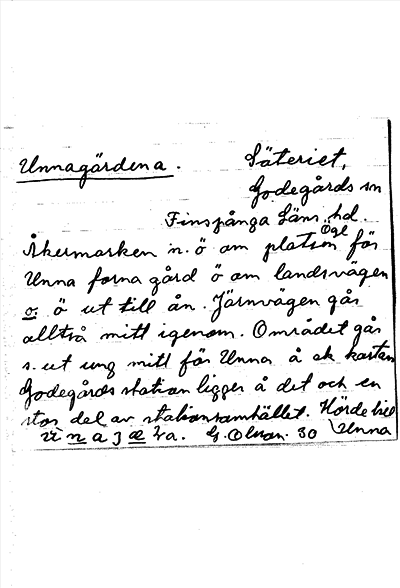 Unnagärdena. Säteriet,
Godegårds sn
Finspånga Läns hd.
Ögl
Åkermarken n. ö om platsen för
Unna forna gård ö om landsvägen
o. ö ut till ån. Järnvägen går
alltså mitt igenom. Området går
s. ut ung mitt för Unna å ek kartan
Godegårds station ligger å det och en
stor del av stationssamhället. Hörde till
Unna
G. Olson. 30